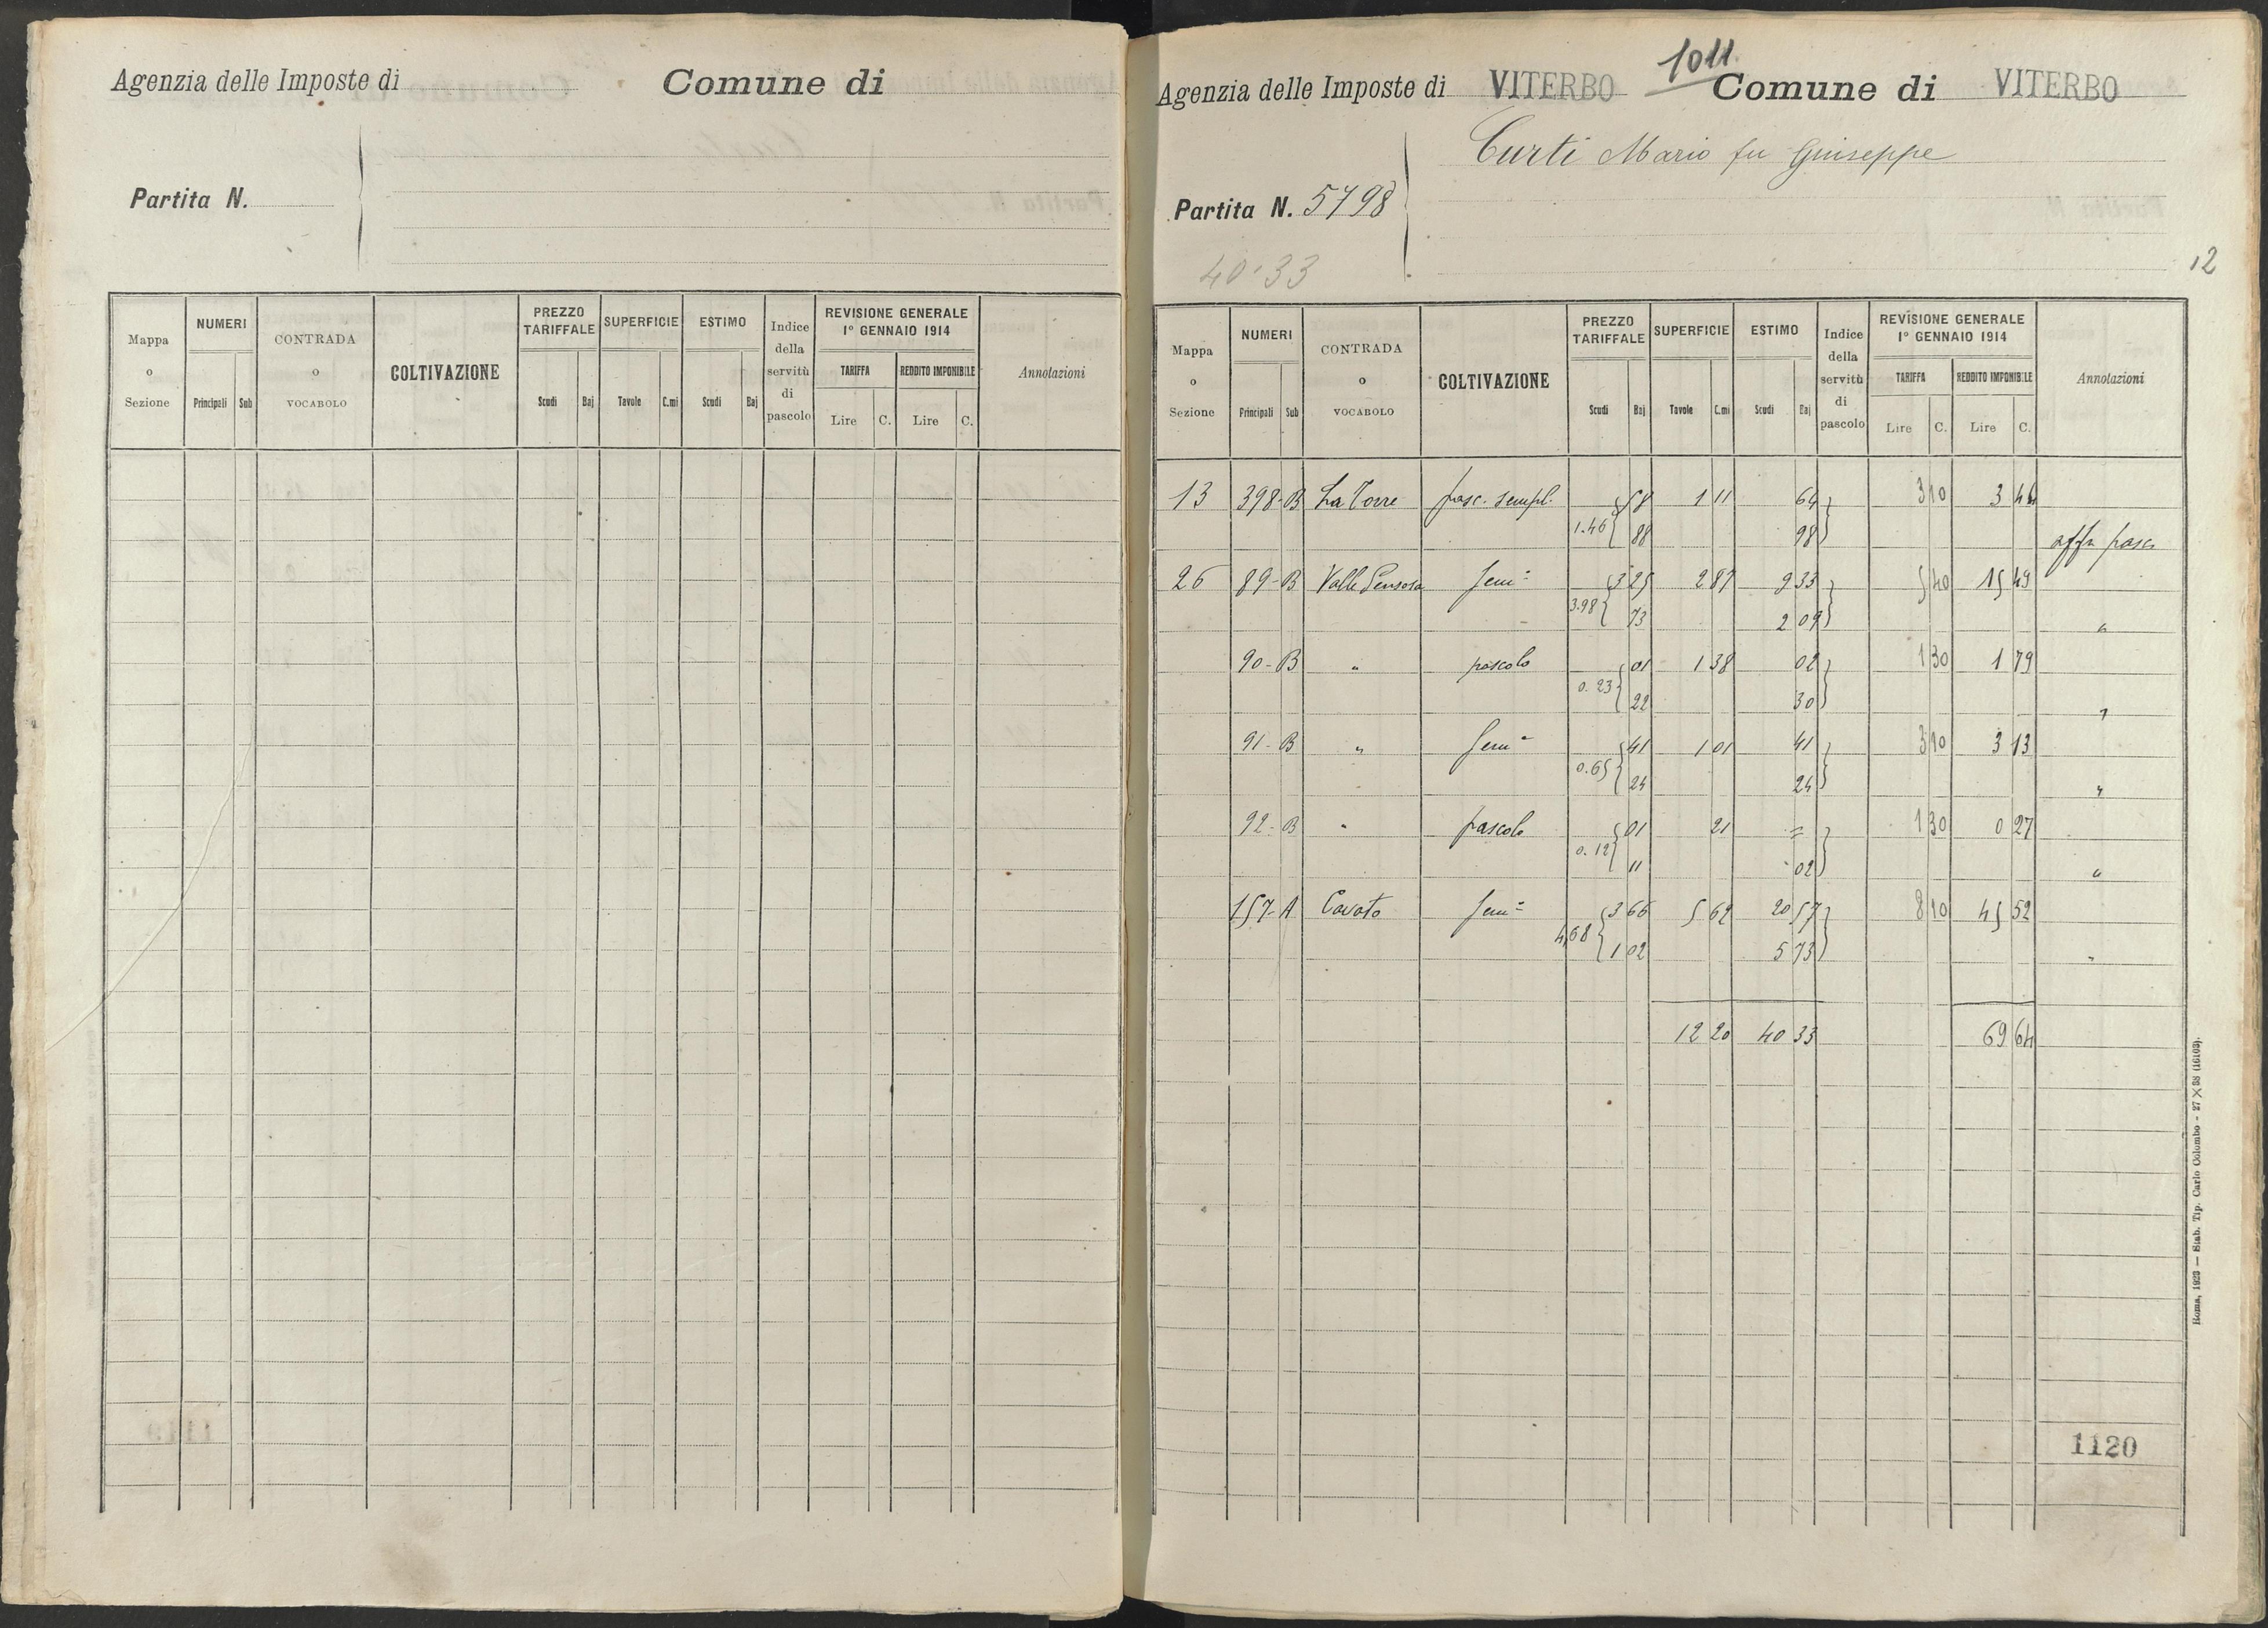 Agenzia delle Imposte di Comune di
Partita N.
Mappa o Sezione NUMERI Principali Sub CONTRADA o VOCABOLO COLTIVAZIONE PREZZO TARIFFALE Scudi Baj SUPERFICIE Tavole C.mi ESTIMO Scudi Baj Indice della servitù di pascolo REVISIONE GENERALE 1° GENNAIO 1914 TARIFFA Lire C. REDDITO IMPONIBILE Lire C. Annotazioni
1011.
Agenzia delle Imposte di VITERBO Comune di VITERBO
Curti Mario fu Giuseppe
Partita N. 5798
40-33
12
Mappa o Sezione NUMERI Principali Sub CONTRADA o VOCABOLO COLTIVAZIONE PREZZO TARIFFALE Scudi Baj SUPERFICIE Tavole C.mi ESTIMO Scudi Baj Indice della servitù di pascolo REVISIONE GENERALE 1° GENNAIO 1914 TARIFFA Lire C. REDDITO IMPONIBILE Lire C. Annotazioni
13 398-B La Torre pasc. sempl. 58 1 11 64 3 10 3 44
1.46 88 98 affr pasc
26 89-B Valle Pensosa Sem= 3 25 2 87 9 33 5 40 15 49
3.98 73 2 09 "
90-B " pascolo 01 1 38 02 1 30 1 79
0.23 22 30 "
91-B " Sem= 41 1 01 41 3 10 3 13
0.65 24 24 "
92-B " pascolo 01 21 = 1 30 0 27
0.12 11 02 "
157-A Cavato Sem= 3 66 5 62 20 57 8 10 45 52
4,68 1 02 5 73 "
12 20 40 33 69 64
1120
Roma, 1923 — Stab. Tip. Carlo Colombo - 27 X 38 (16103).